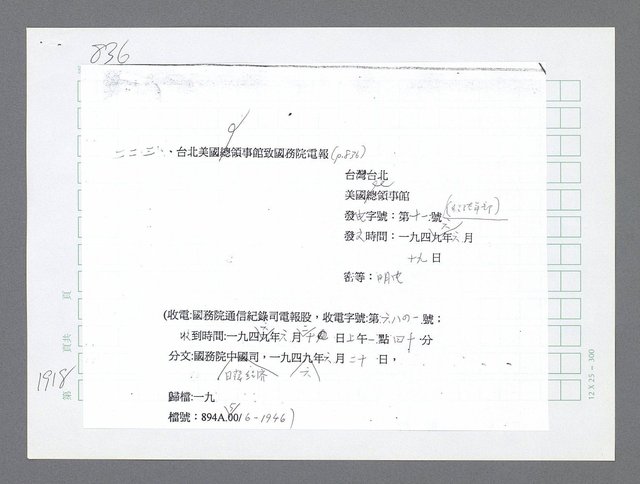 836
二二·三·、台北美國總領事館致國務院電報(p.836)
台灣台北
美國總領事館
發電字號：第十一號
發文時間：一九四九年六月
十九日
密等：明電
(收電:國務院通信紀錄司電報股，收電字號:第六八四一號；
收到時間:一九四九年六月二十日上午一點四十分
分文:國務院中國司，一九四九年六月二十日，
歸檔:一九
檔號：894A.00/6-1946)
1918
第 頁共 頁
12 X 25 = 300